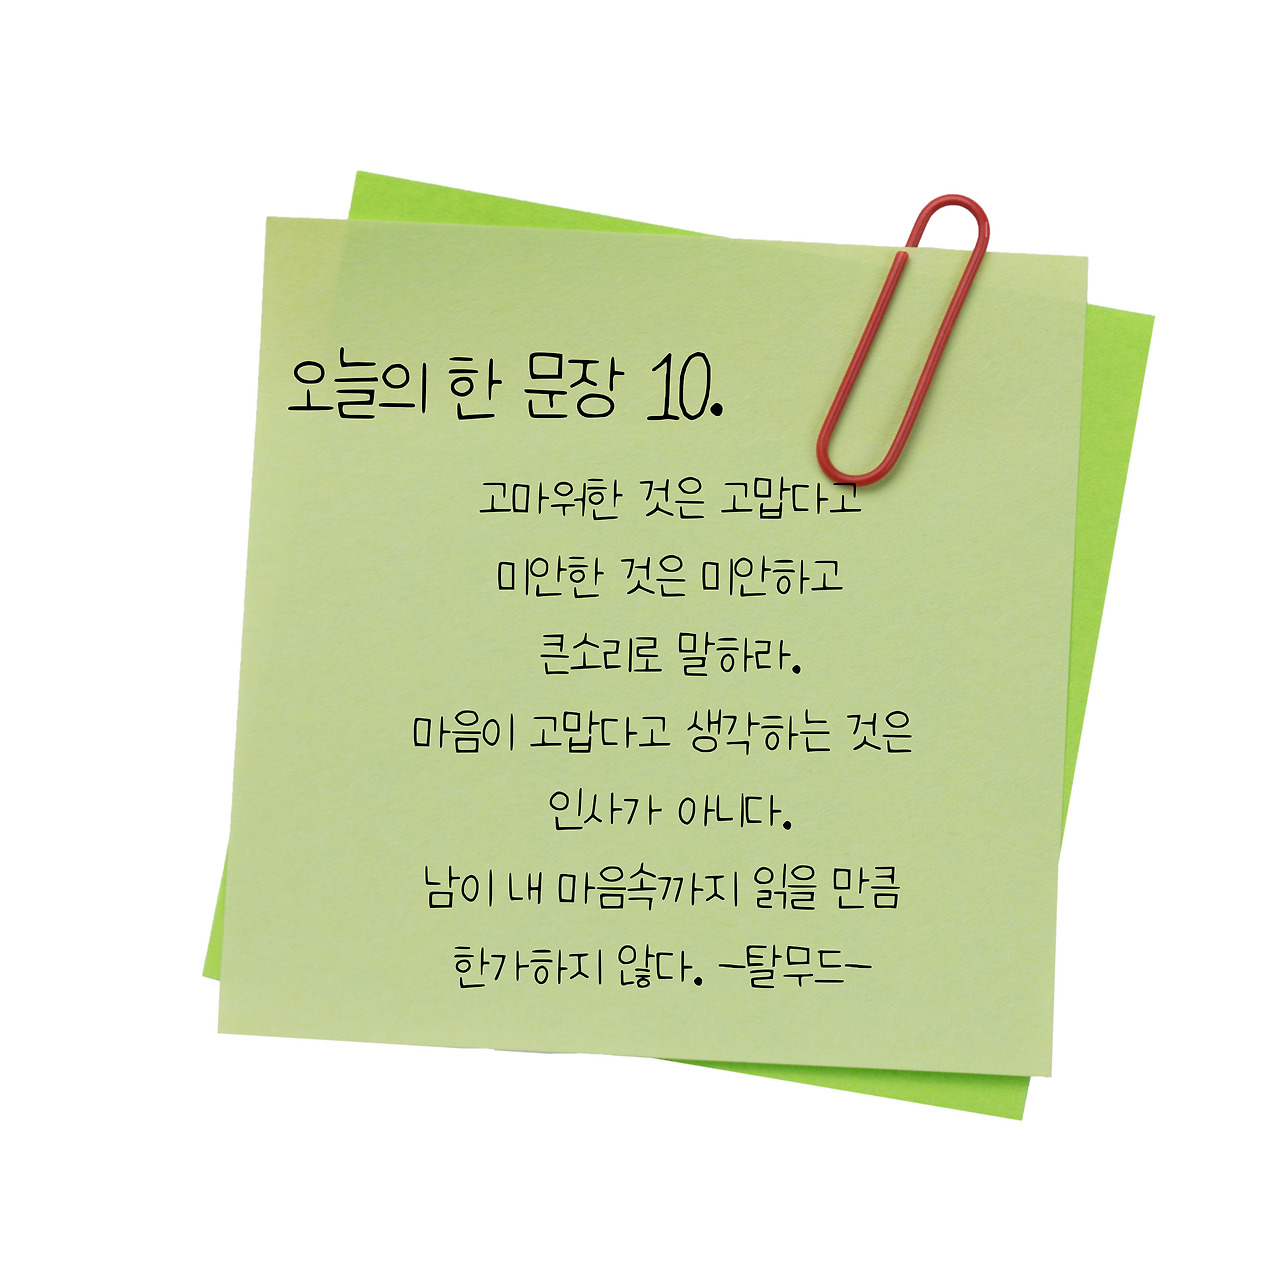 오늘의 한 문장 10.
고마워한 것은 고맙다고
미안한 것은 미안하고
큰소리로 말하라.
마음이 고맙다고 생각하는 것은
인사가 아니다.
남이 내 마음속까지 읽을 만큼
한가하지 않다. -탈무드-